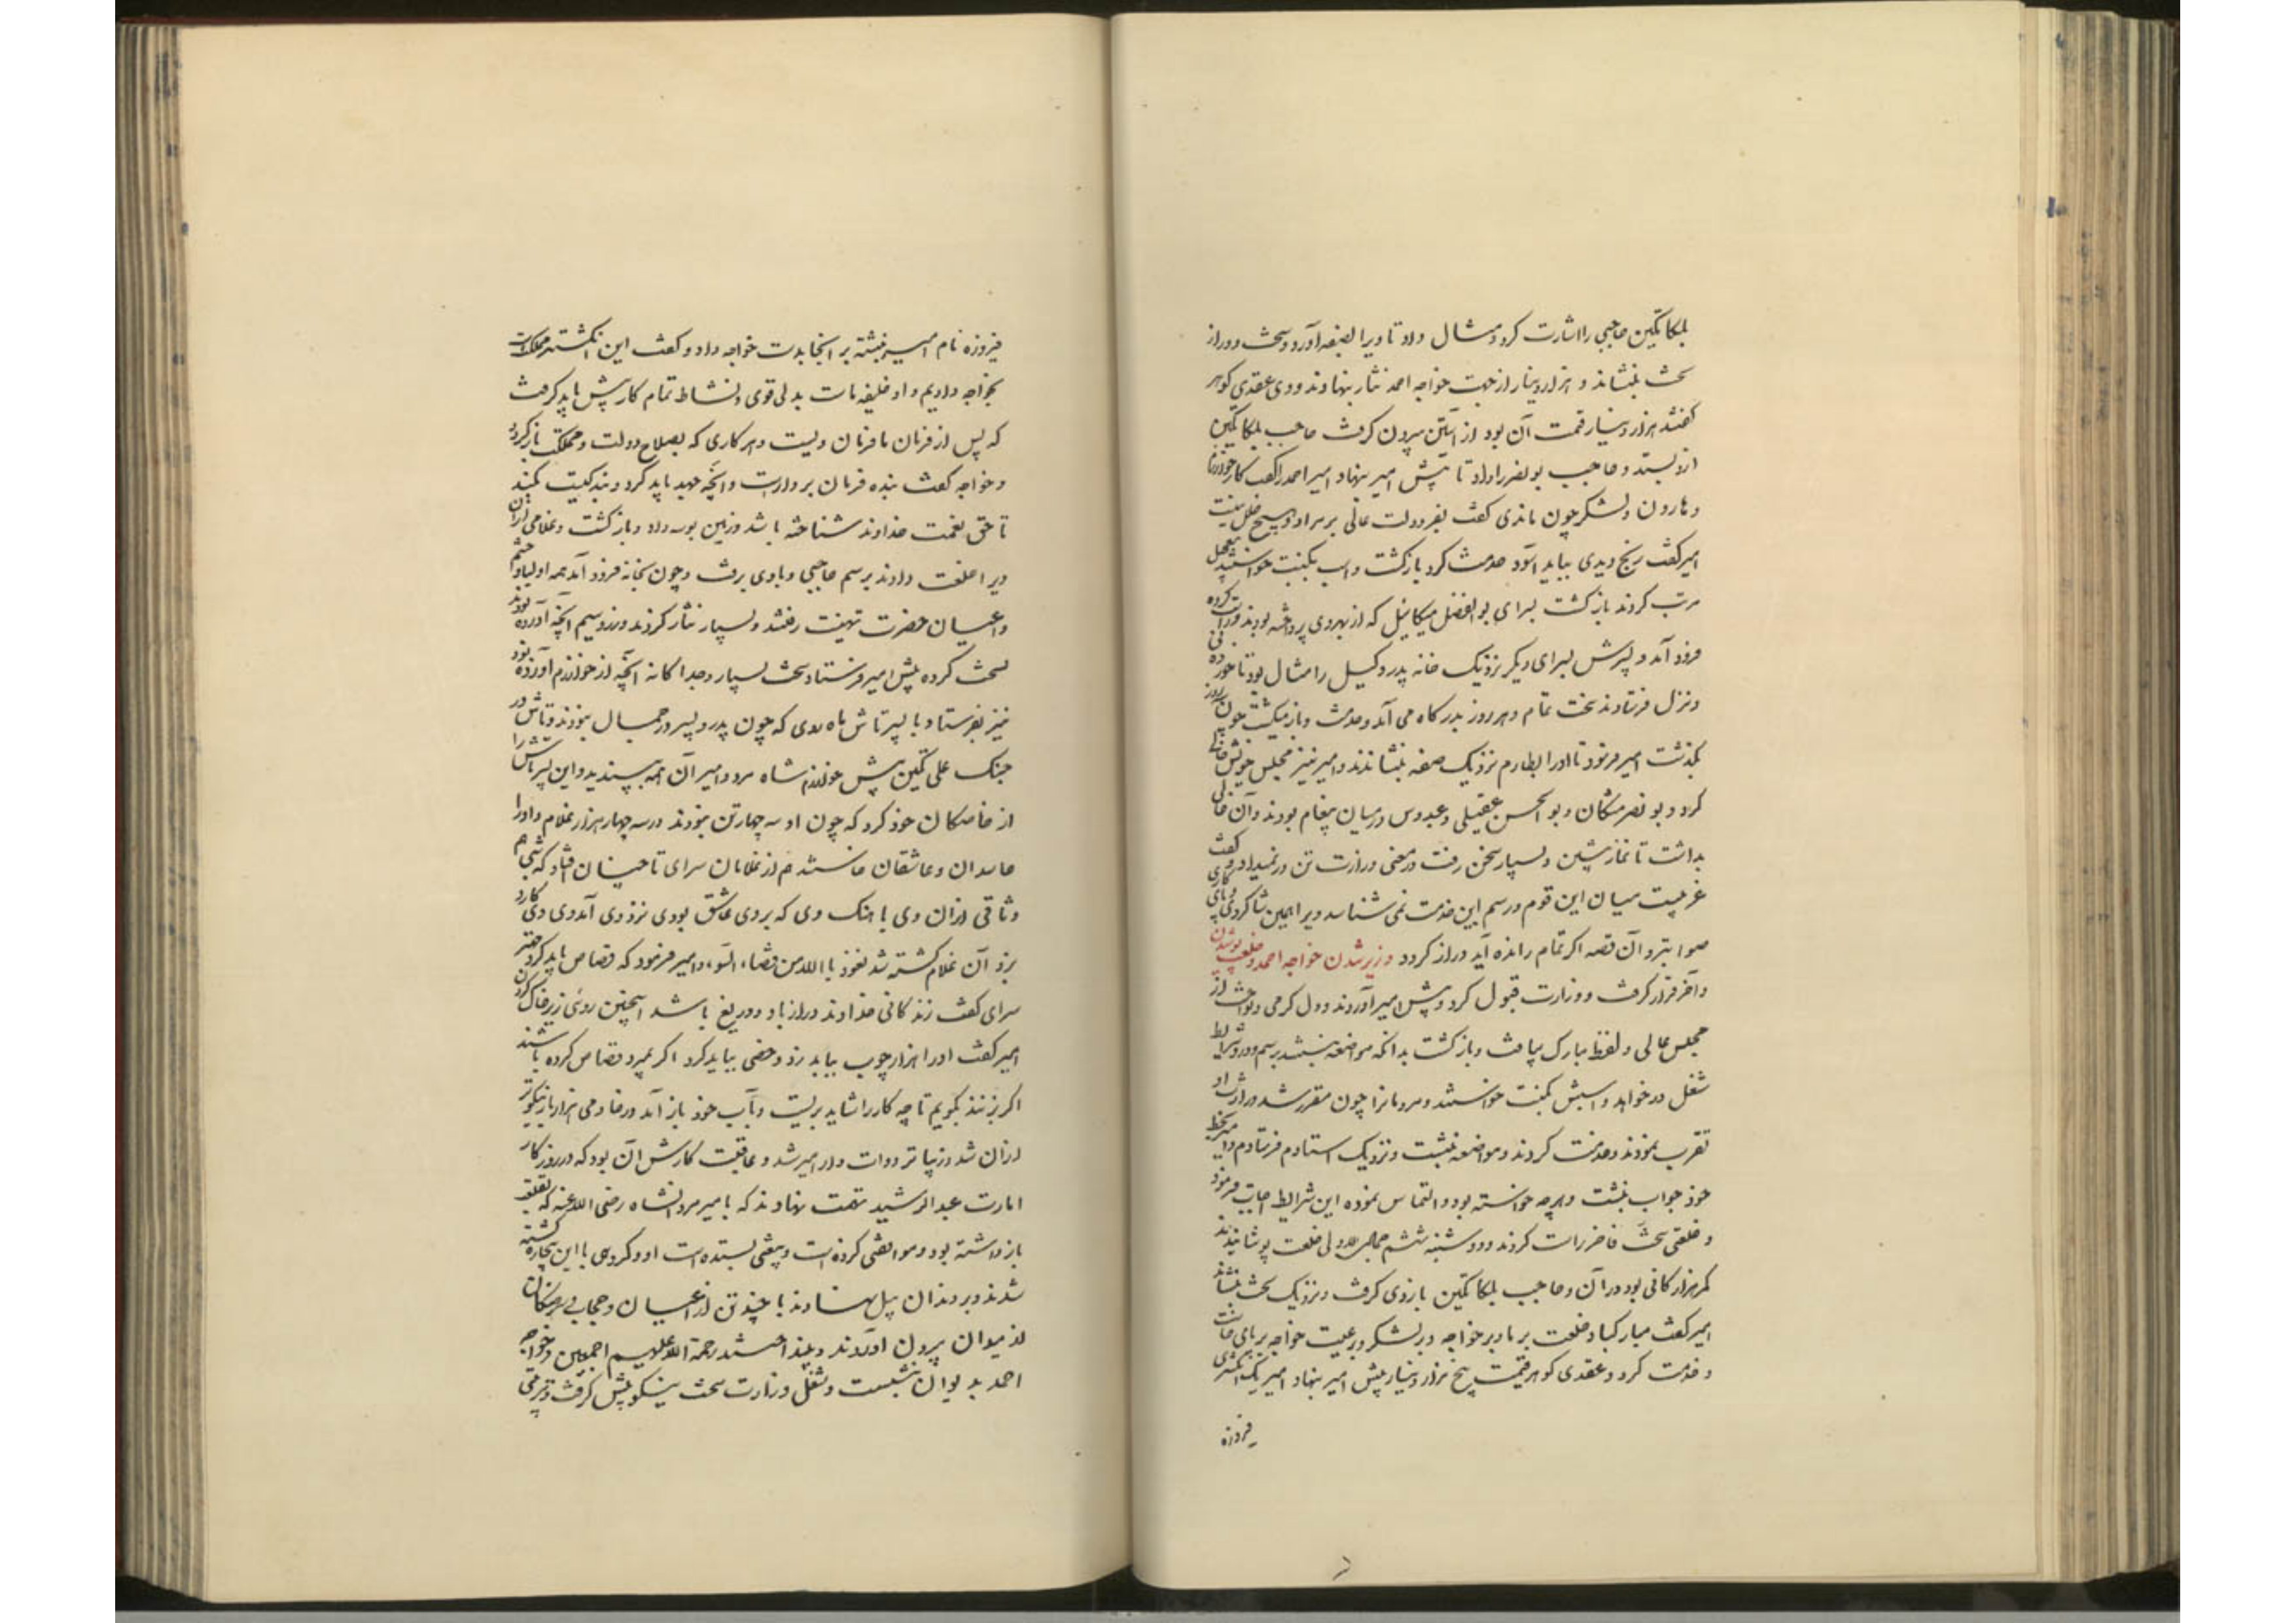 بلکاتکین حاجبی را اشارت کرد و مثال داد تا ویرا بصفه آورد و سخت دور از
تخت بنشاند و هزار دینار از جهت خواجه احمد نثار بنهادند و وی عقدی گوهر
گفتند هزار دینار قیمت آن بود از آستین بیرون گرفت حاجب بلکاتکین
ازو بستد و حاجب بونصر را داد تا پیش امیر بنهاد امیر احمد را گفت کار خوارزم
و هارون و لشکر چون ماندی گفت بفر دولت عالی بر مراد و هیچ خلل نیست
امیر گفت رنج دیدی بباید آسود خدمت کرد و بازگشت و اسب بکنیت خواستند
مرتب کردند بازگشت بسرای بوالفضل میکائیل که از بهر وی پرداخته بودند و راست کرده
فرود آمد و پسرش بسرای دیگر نزدیک خانه پدر وکیل را مثال بود تا خوردنی
و نزل فرستادند سخت تمام و هر روز بدرگاه می آمد و خدمت و باز میگشت چون سه روز
بگذشت امیر فرمود تا او را بطارم نزدیک صفه بنشاندند و امیر نیز مجلس خویش خالی
کرد و بونصر مشکان و بوالحسن عقیلی و عبدوس در میان پیغام بودند و آن خالی
بداشت تا نماز پیشین و بسیار سخن رفت در معنی وزارت تن در نمیداد و گفت
غریبست میان این قوم و رسم این خدمت نمی شناسد ویرا همین شاگردی و پای کاری
صوابتر و آن قصه اگر تمام رانده آید دراز گردد وزیر شدن خواجه احمد و خلعت پوشیدن
و آخر قرار گرفت و وزارت قبول کرد و پیش امیر آوردند و دل گرمی و نواخت از
مجلس عالی و لفظ مبارک بیافت و بازگشت بدانکه مواضعه نبیسد برسم و درو شرایط
شغل درخواهد و اسبش بکنیت خواستند و مردمانرا چون مقرر شد وزارت او
تقرب نمودند و خدمت کردند و مواضعه نبشت و نزدیک استادم فرستادم و امیر بخط
خود جواب نبشت و هرچه خواسته بود و التماس نموده این شرایط اجابت فرمود
و خلعتی سخت فاخر راست کردند و دوشنبه ششم جمادی الاولی خلعت پوشانیدند
کمر هزارگانی بود در آن و حاجب بلکاتکین بازوی گرفت و نزدیک تخت بنشاند
امیر گفت مبارکباد خلعت بر ما و بر خواجه و بر لشکر و رعیت خواجه بر پای خاست
و خدمت کرد و عقدی گوهر قیمت پنج هزار دینار پیش امیر بنهاد امیر یک انگشتری
فیروزه
فیروزه نام امیر نبشته بر آنجا بدست خواجه داد و گفت این انگشتری مملکتست
بخواجه دادیم و او خلیفه ماست بدلی قوی و نشاط تمام کار پیش باید گرفت
که پس از فرمان ما فرمان ویست و هر کاری که بصلاح دولت و مملکت باز گردد
و خواجه گفت بنده فرمان بردارست و آنچه جهد باید کرد و بندگیست بکند
تا حق نعمت خداوند شناخته باشد و زمین بوسه داد و بازگشت و غلامی از آن
ویرا خلعت دادند برسم حاجبی و با وی برفت و چون بخانه فرود آمد همه اولیا و حشم
و اعیان حضرت تهنیت رفتند و بسیار نثار کردند و زر و سیم آنچه آورده بودند
نسخت کرده پیش امیر فرستاد سخت بسیار و جداگانه آنچه از خوارزم آورده بود
نیز بفرستاد با پسر تاش ماه روی که چون پدر و پسر در جمال نبودند و تاش در
جنگ علی تکین پیش خوارزم شاه مرد و امیر آن همه بپسندید و این پسر تاش را
از خاصگان خود کرد که چون او سه چهار تن نبودند در سه چهار هزار غلام و او را
حاسدان و عاشقان خاستند هم از غلامان سرای تا چنان افتاد که شبی هم
وثاقی از آن وی بآهنگ وی که بر وی عاشق بودی نزد وی آمد وی کارد
بزد آن غلام کشته شد نعوذ بالله من قضاء السوء و امیر فرمود که قصاص باید کرد مهتر
سرای گفت زندگانی خداوند دراز باد و دریغ باشد اینچنین روئی زیر خاک کردن
امیر گفت او را هزار چوب بباید زد و خصی بباید کرد اگر بمیرد قصاص کرده باشند
اگر بزیند بگویم تا چه کار را شاید بزیست و بآب خود باز آمد در خادمی هزار بار نیکوتر
از آن شد و زیباتر دوات دار امیر شد و عاقبت کارش آن بود که در روزگار
امارت عبدالرشید تهمت نهادند که با امیر مردانشاه رضی الله عنه که بقلعه
بازداشته بود و موافقتی کرده است و بیعتی بستده است او و گروهی با این بیچاره کشته
شدند و بر دندان پیل نهادند با چند تن از اعیان و حجاب و سرهنگان
از میدان بیرون آوردند و بینداختند رحمة الله علیهم اجمعین و خواجه
احمد بدیوان بنشست و شغل وزارت سخت نیکو پیش گرفت و ترتیبی